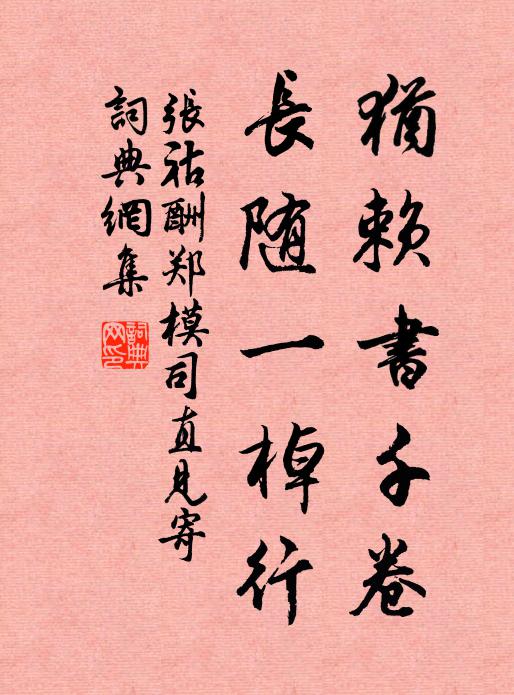 猶賴書千卷
長随一棹行
張祜酬郑模司直見寄
詞典網集
詞典网印